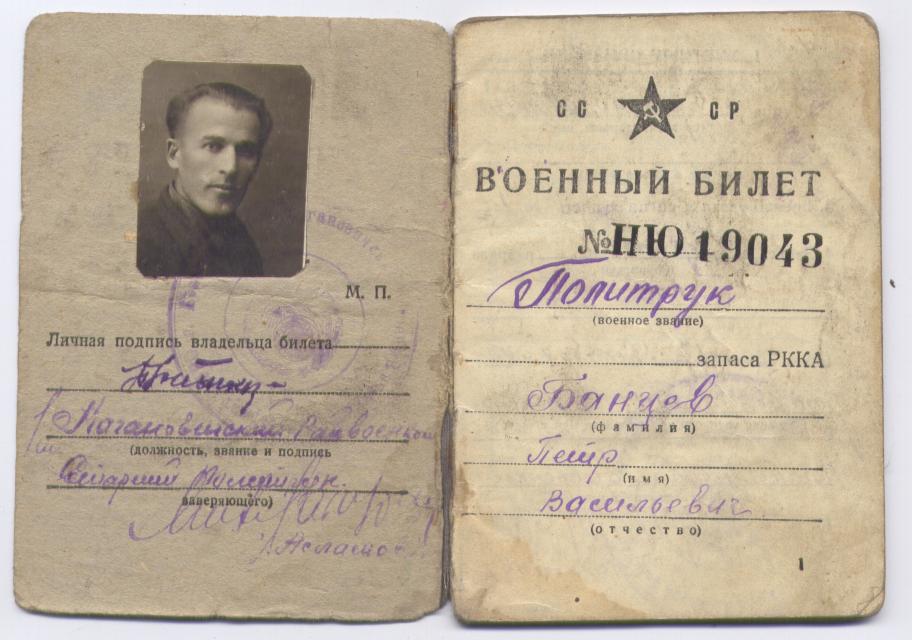 М. П.
Личная подпись владельца билета
Кагановичский Райвоенком
(должность, звание и подпись
Старший политрук.
заверяющего)
СС СР
ВОЕННЫЙ БИЛЕТ
№НЮ 19043
Политрук
(военное звание)
запаса РККА
Банцов
(фамилия)
Петр
(имя)
Васильевич
(отчество)
1